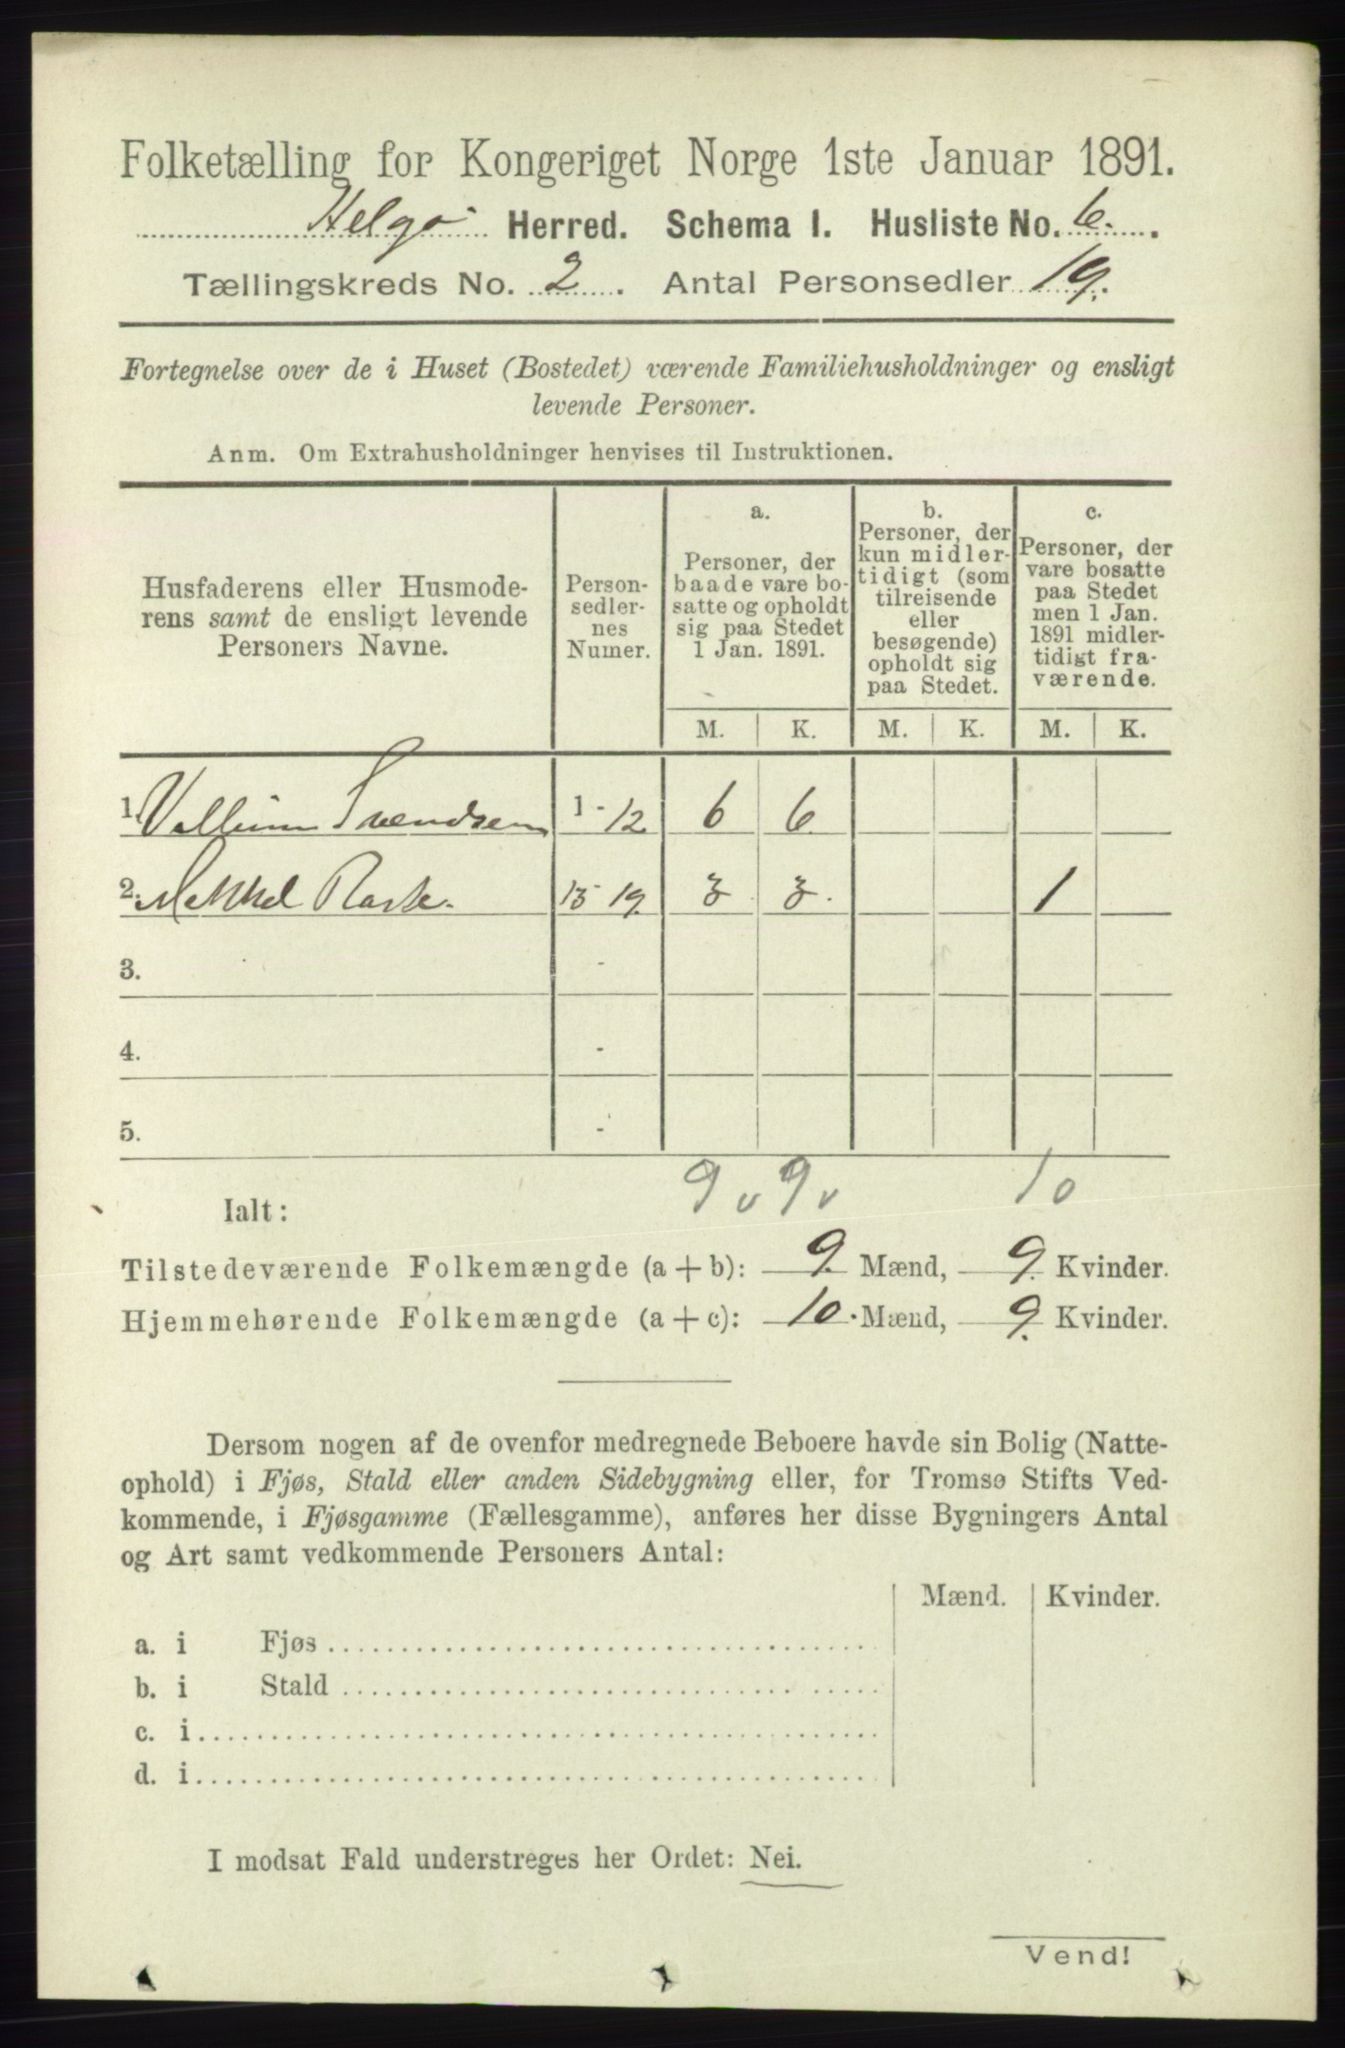 Folketælling for Kongeriget Norge 1ste Januar 1891.
Helgø Herred. Schema I. Husliste No. 6.
Tællingskreds No. 2. Antal Personsedler 19.
Fortegnelse over de i Huset (Bostedet) værende Familiehusholdninger og ensligt
levende Personer.
Anm. Om Extrahusholdninger henvises til Instruktionen.
Husfaderens eller Husmode-
rens samt de ensligt levende
Personers Navne.
Person-
sedler-
nes
Numer.
a.
Personer, der
baade vare bo-
satte og opholdt
sig paa Stedet
1 Jan. 1891.
b.
Personer, der
kun midler-
tidigt (som
tilreisende
eller
besøgende)
opholdt sig
paa Stedet.
c.
Personer, der
vare bosatte
paa Stedet
men 1 Jan.
1891 midler-
tidigt fra-
værende.
M. K. M. K. M. K.
1. Svendsen 1 - 12 6 6
2. 13 - 19. 3 3. 1
3. -
4. -
5. -
Ialt: 9 v 9 v 10
Tilstedeværende Folkemængde (a + b): 9 Mænd, 9. Kvinder.
Hjemmehørende Folkemængde (a + c): 10. Mænd, 9. Kvinder.
Dersom nogen af de ovenfor medregnede Beboere havde sin Bolig (Natte-
ophold) i Fjøs, Stald eller anden Sidebygning eller, for Tromsø Stifts Ved-
kommende, i Fjøsgamme (Fællesgamme), anføres her disse Bygningers Antal
og Art samt vedkommende Personers Antal:
Mænd. Kvinder.
a. i Fjøs
b. i Stald
c. i
d. i
I modsat Fald understreges her Ordet: Nei.
Vend!